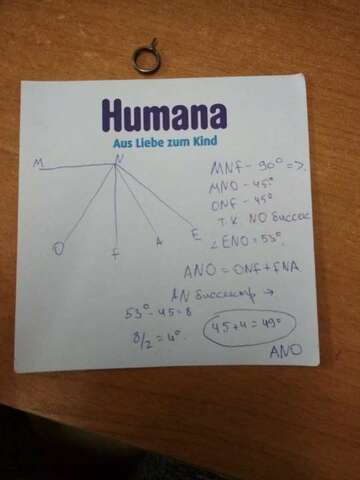 Humana
Aus Liebe zum Kind
M
N
O
F
A
E
MNF - 90° =>
MNO - 45°
ONF - 45°
т.к. NO биссек
∠ENO = 53°
ANO = ONF + FNA
AN биссектр →
53° - 45 = 8
8/2 = 4°
45 + 4 = 49°
ANO